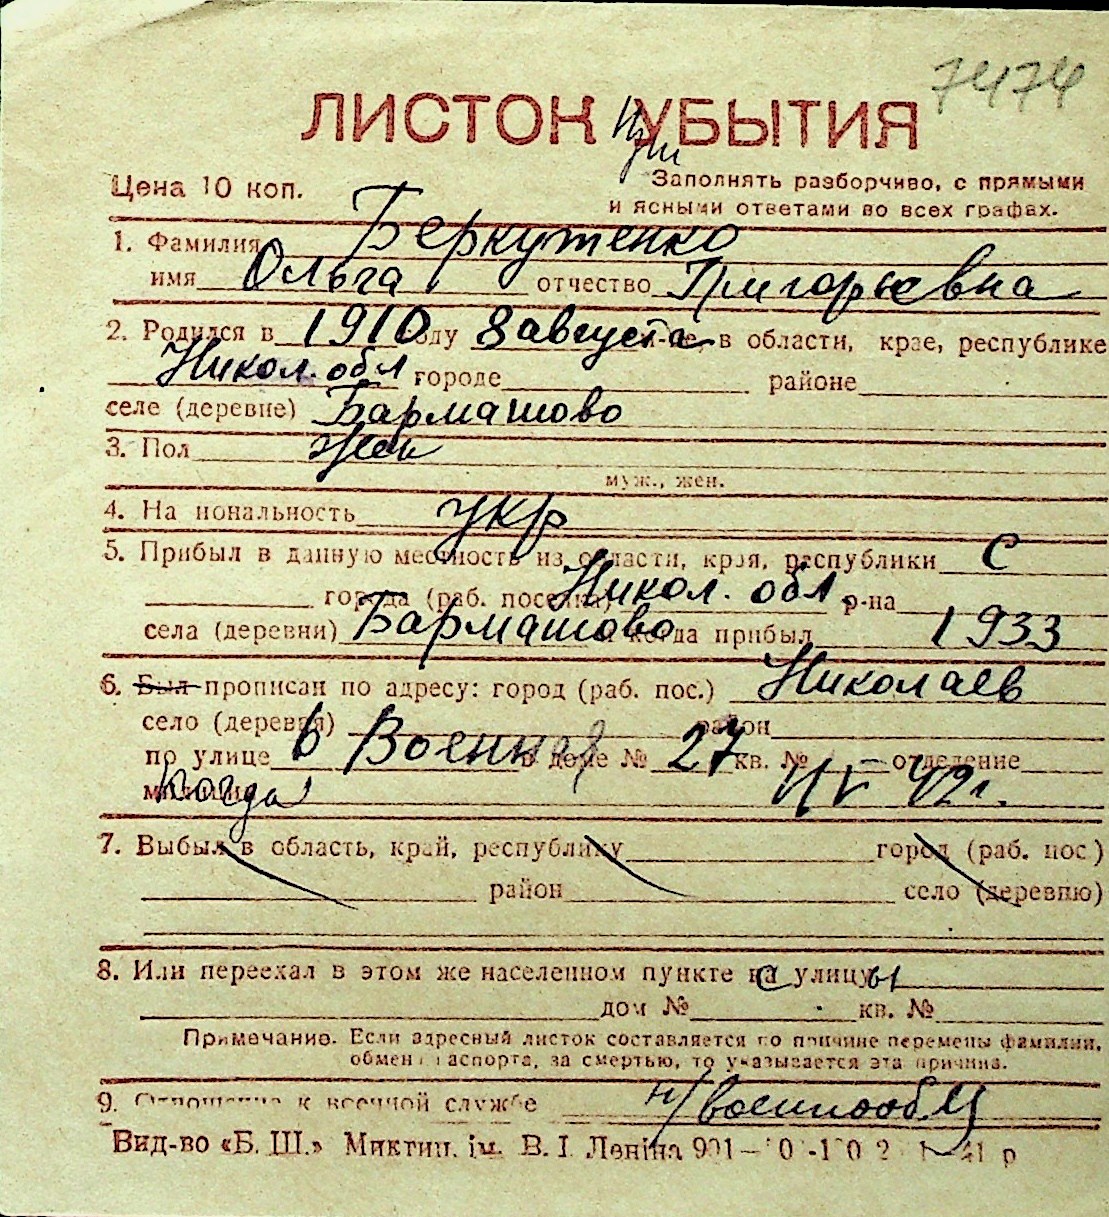 7474
ЛИСТОК УБЫТИЯ
При
Цена 10 коп.
Заполнять разборчиво, с прямыми
и ясными ответами во всех графах.
1. Фамилия Беркутенко
имя Ольга отчество Григорьевна
2. Родился в 1910 году 8 августа м-це, в области, крае, республике
Никол. обл городе районе
селе (деревне) Бармашово
3. Пол жен
муж., жен.
4. Национальность укр
5. Прибыл в данную местность из области, края, республики С
города (раб. поселка) Никол. обл. р-на
села (деревни) Бармашово когда прибыл 1933
6. Был прописан по адресу: город (раб. пос.) Николаев
село (деревня) район
по улице 6 Военная в доме № 27 кв. № отделение
милиции когда IV 42 г.
7. Выбыл в область, край, республику город (раб. пос)
район село (деревню)
8. Или переехал в этом же населенном пункте с улицы
дом № кв. №
Примечание. Если адресный листок составляется по причине перемены фамилии,
обмен паспорта, за смертью, то указывается эта причина.
9. Отношение к военной службе н/военнообяз
Вид-во «Б. Ш.» Миктип. ім. В. І. Леніна 901